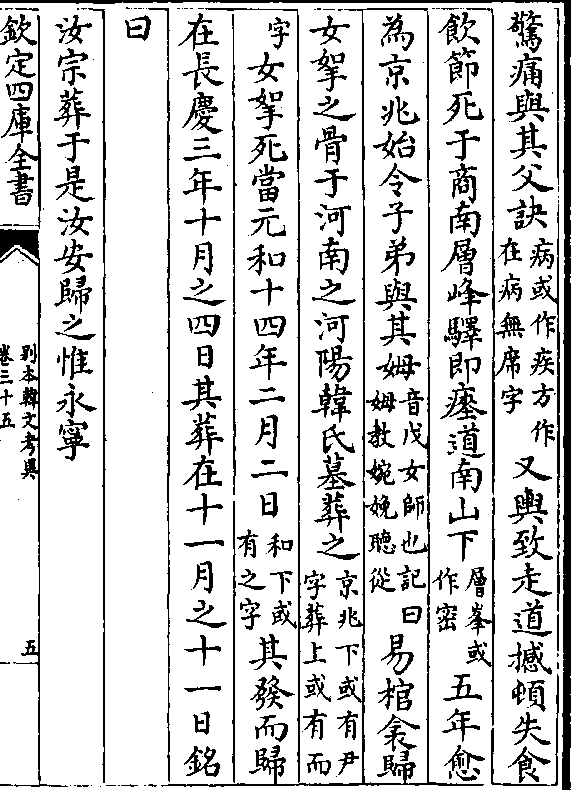 驚痛與其父訣病或作疾方作在病無席字又輿致走道撼頓失食
飲節死于商南層峰驛即瘞道南山下層峯或作密五年愈
為京兆始令子弟與其姆音戊女師也記曰姆教婉娩聽從易棺衾歸
女挐之骨于河南之河陽韓氏墓葬之京兆下或有尹字葬上或有而
字女挐死當元和十四年二月二日和下或有之字其發而歸
在長慶三年十月之四日其葬在十一月之十一日銘
曰
汝宗葬于是汝安歸之惟永寧
欽定四庫全書
別本韓文考異
卷三十五
五